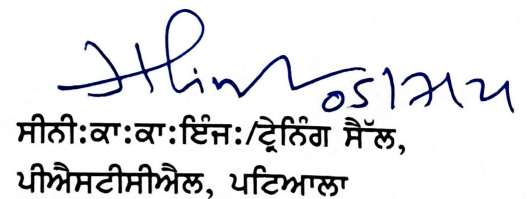 ਸੀਨੀ:ਕਾ:ਕਾ:ਇੰਜ:/ਟ੍ਰੇਨਿੰਗ ਸੈੱਲ,
ਪੀਐਸਟੀਸੀਐਲ, ਪਟਿਆਲਾ